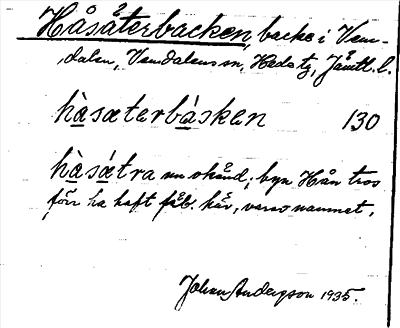 Håsåterbacken, backe i Vem-
dalen, Vemdalens sn, Hede tg, Jämtl. l.
hàsæterbásken 130
hàsǽtra nu okänd; byn Hån tros
förr ha haft fäb. här, varav namnet.
Johan Andersson 1935.